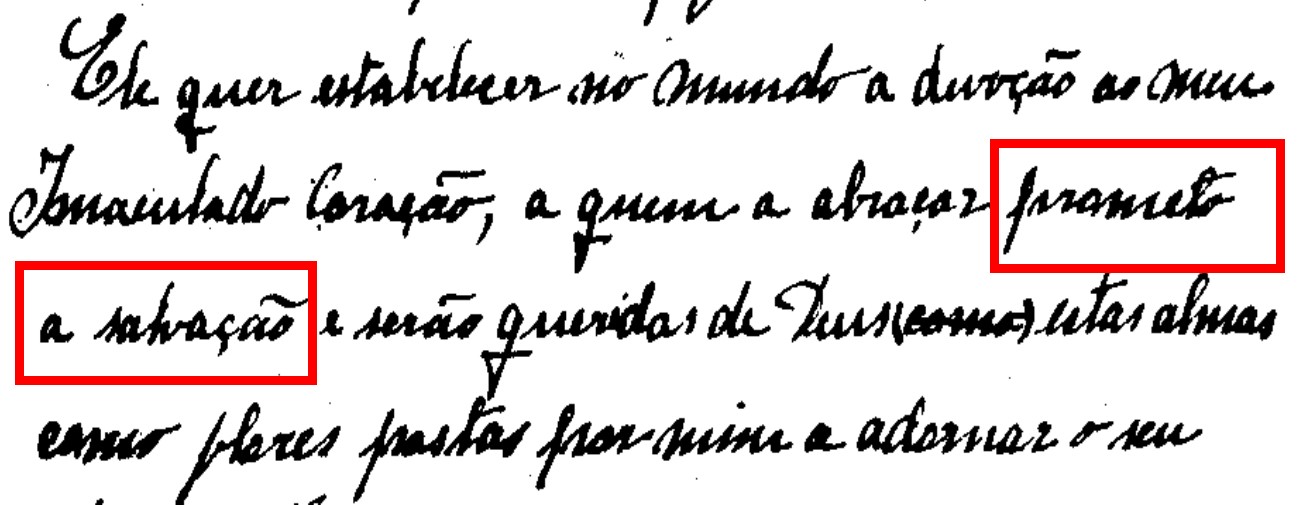 Ele quer estabelecer no mundo a devoção ao meu
Imaculado Coração, a quem a abraçar prometo
a salvação e serão queridas de Deus (como) estas almas
como flores postas por mim a adornar o seu